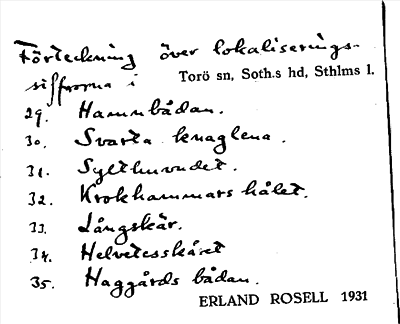 Förteckning över lokaliserings-
siffrorna i Torö sn, Soth.s hd, Sthlms l.
29. Hamnbådan.
30. Svarta knaglena.
31. Sylthuvudet.
32. Krokhammars hålet.
33. Långskär.
34. Helvetesskäret
35. Haggårds bådan.
ERLAND ROSELL 1931